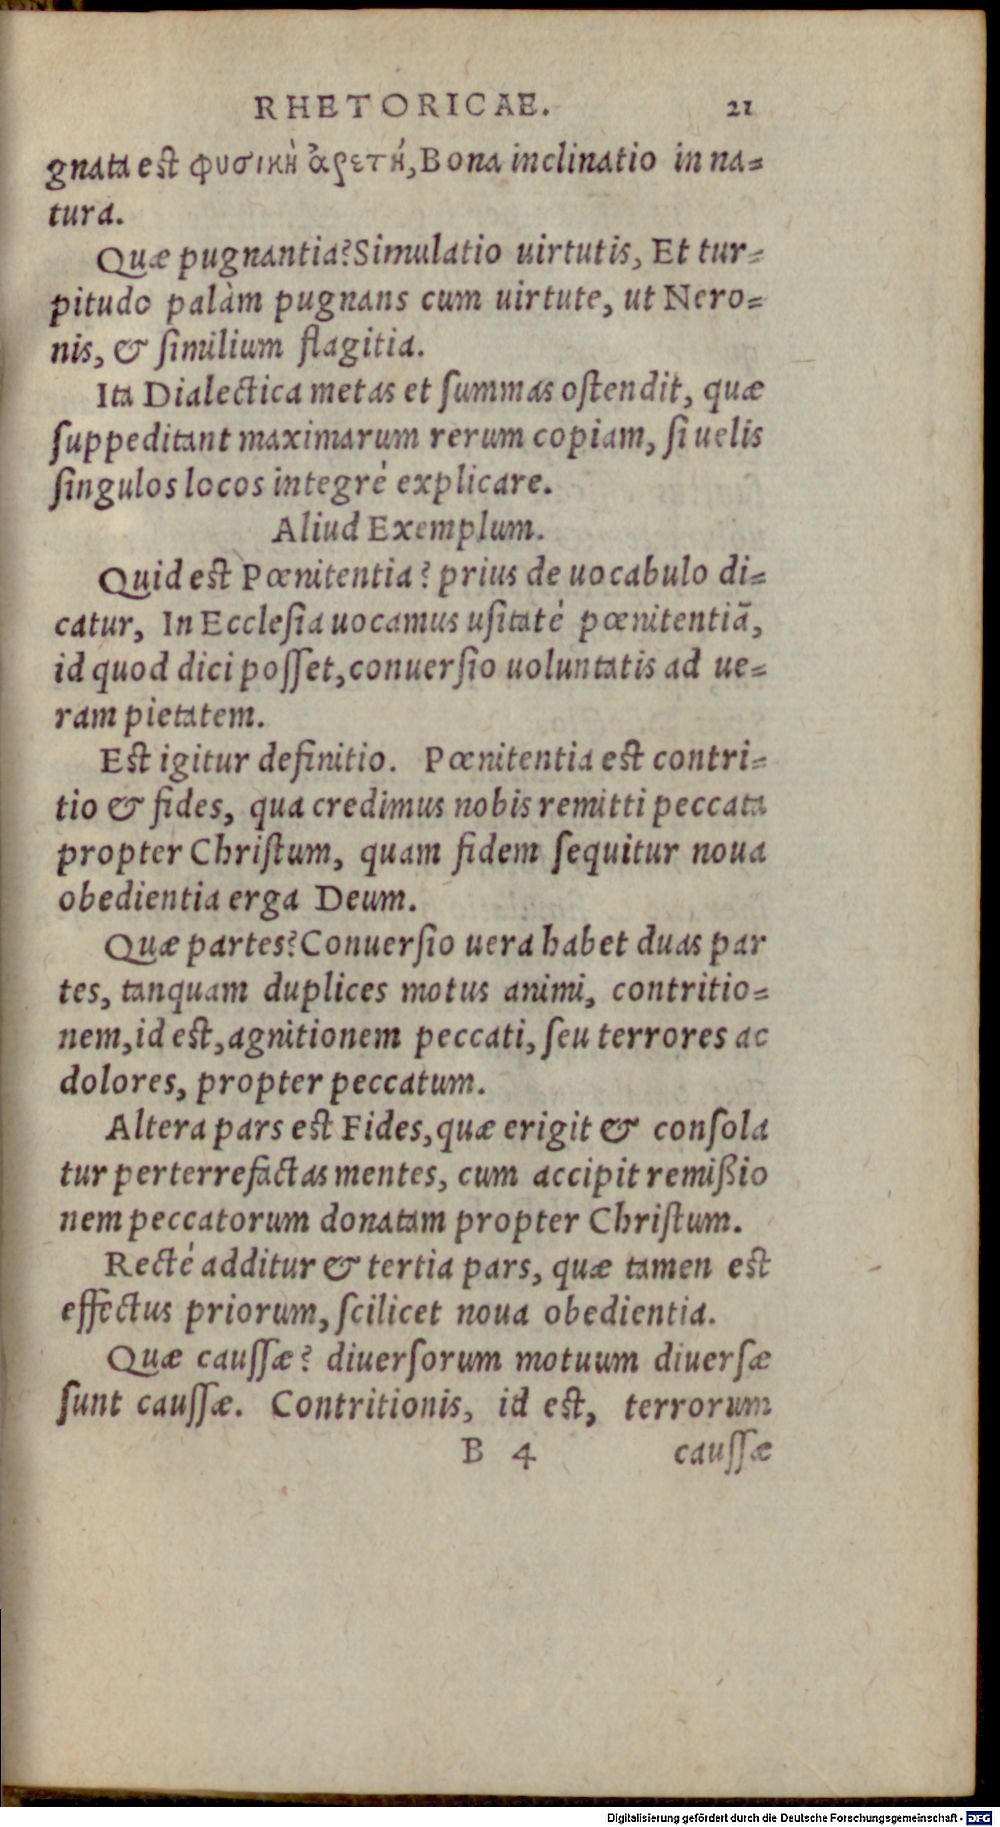 RHETORICAE. 21
gnata est φυσικὴ ἀρετή, Bona inclinatio in na=
tura.
Quæ pugnantia? Simulatio uirtutis, Et tur=
pitudo palàm pugnans cum uirtute, ut Nero=
nis, & ſimilium flagitia.
Ita Dialectica metas et ſummas oſtendit, quæ
ſuppeditant maximarum rerum copiam, ſi uelis
ſingulos locos integrè explicare.
Aliud Exemplum.
Quid est Pœnitentia? prius de uocabulo di=
catur, In Eccleſia uocamus uſitatè pœnitentiã,
id quod dici poſſet, conuerſio uoluntatis ad ue=
ram pietatem.
Eſt igitur definitio. Pœnitentia eſt contri=
tio & fides, qua credimus nobis remitti peccata
propter Chriſtum, quam fidem ſequitur noua
obedientia erga Deum.
Quæ partes? Conuerſio uera habet duas par
tes, tanquam duplices motus animi, contritio=
nem, id eſt, agnitionem peccati, ſeu terrores ac
dolores, propter peccatum.
Altera pars eſt Fides, quæ erigit & conſola
tur perterrefactas mentes, cum accipit remißio
nem peccatorum donatam propter Chriſtum.
Rectè additur & tertia pars, quæ tamen eſt
effectus priorum, ſcilicet noua obedientia.
Quæ cauſſæ? diuerſorum motuum diuerſæ
ſunt cauſſæ. Contritionis, id eſt, terrorum
B 4 cauſſæ
Digitalisierung gefördert durch die Deutsche Forschungsgemeinschaft - DFG